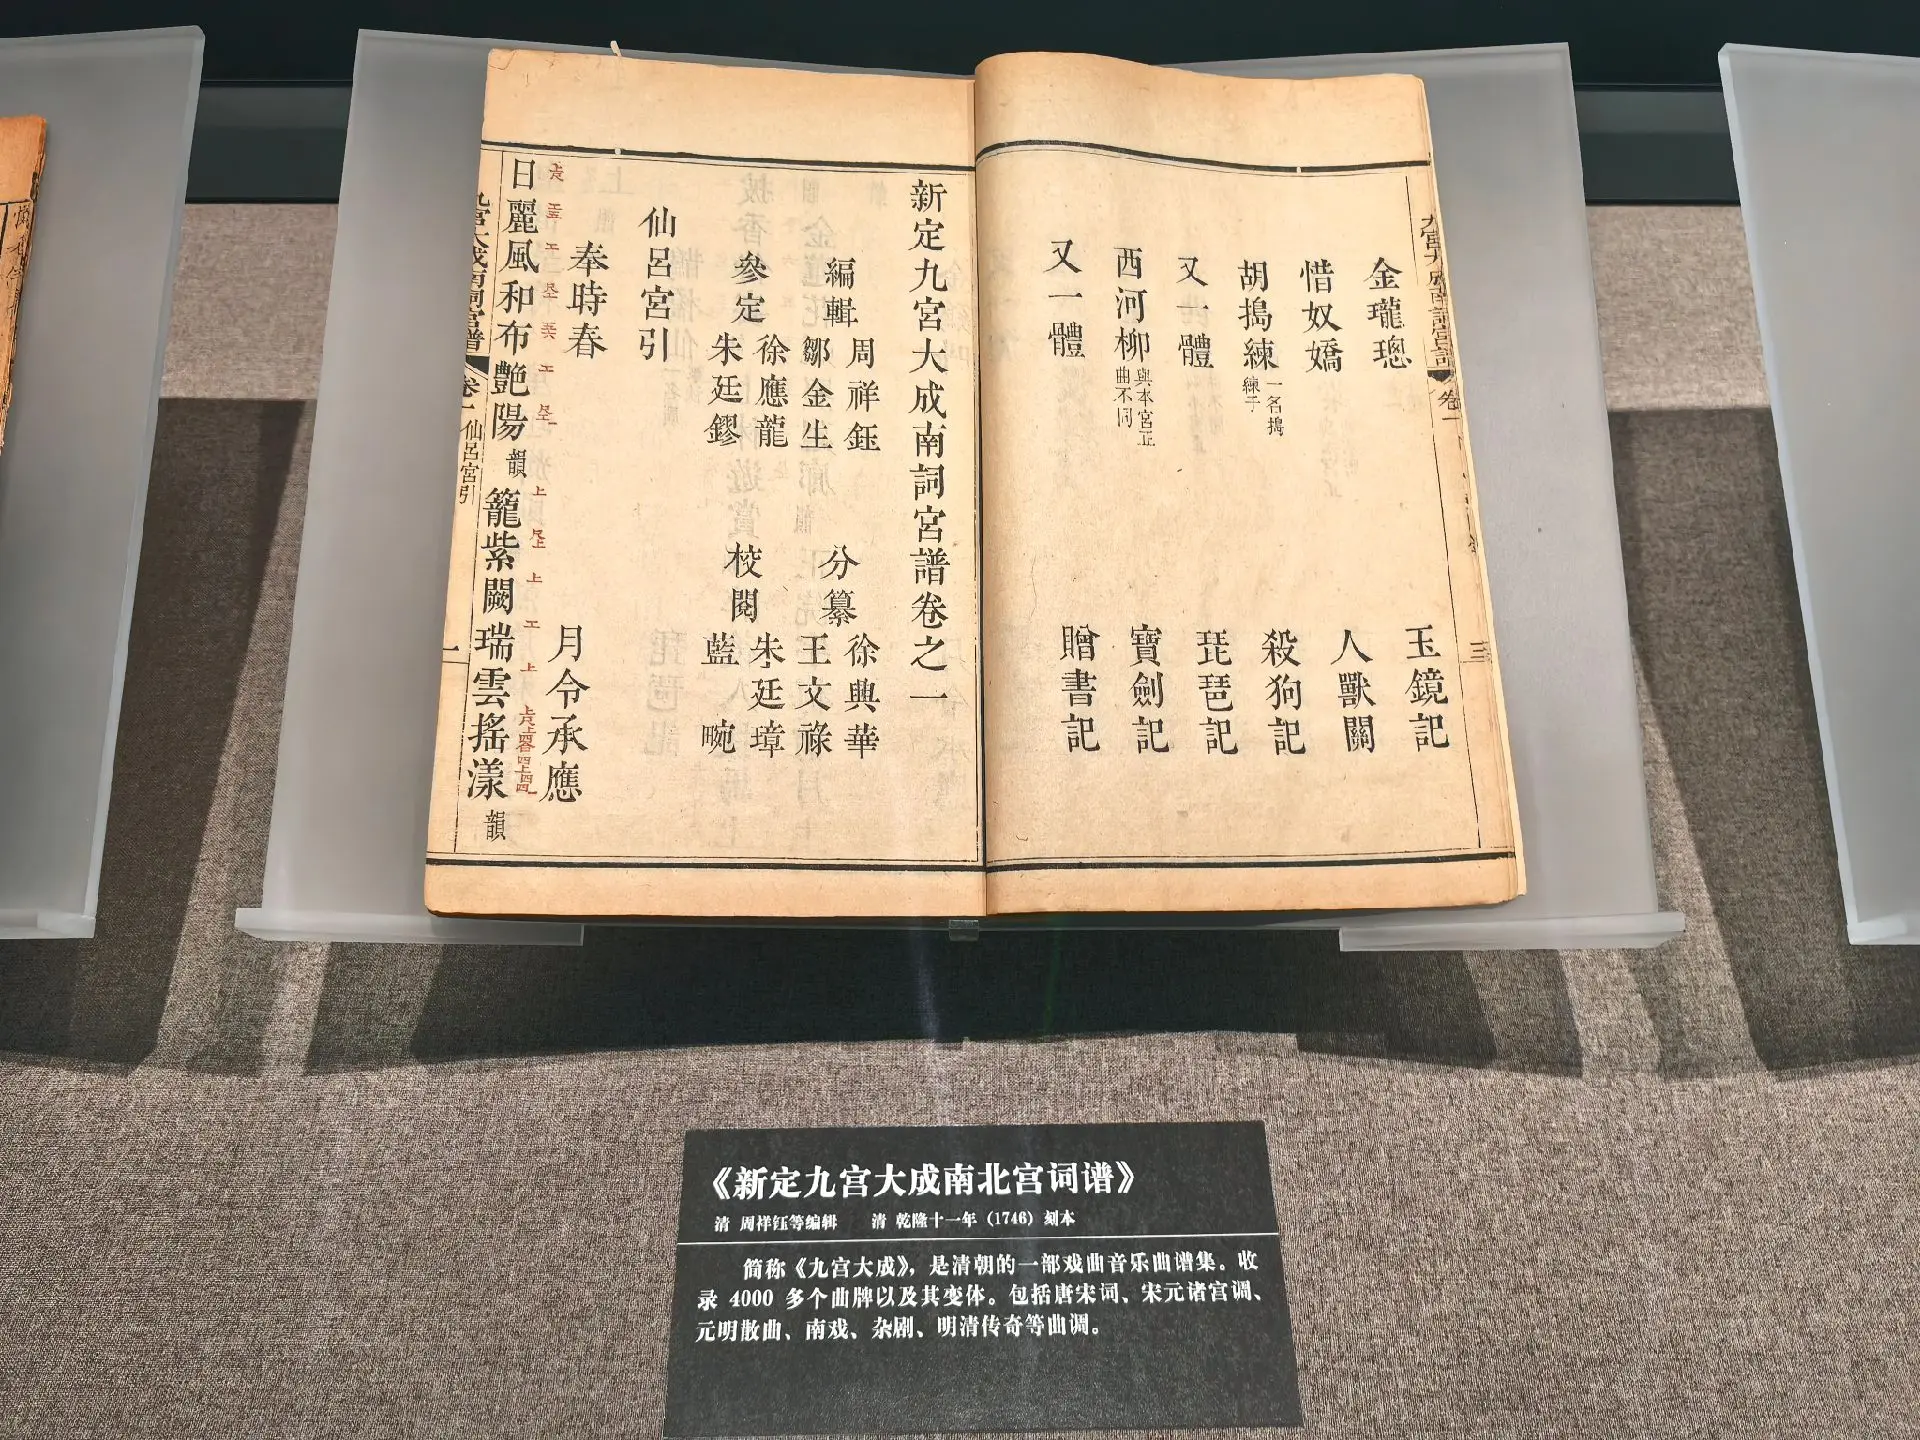 金瓏璁
玉鏡記
惜奴嬌
人獸關
胡搗練 一名搗練子
殺狗記
又一體
琵琶記
西河柳 與本宮正曲不同
寶劍記
又一體
贈書記
新定九宮大成南詞宮譜卷之一
編輯 周祥鈺 鄒金生
分纂 徐興華 王文祿
參定 徐應龍 朱廷鏐
校閱 朱廷璋 藍畹
仙呂宮引
奉時春
月令承應
日麗風和布艷陽韻籠紫闕瑞雲搖漾韻
九宮大成南詞宮譜 卷一 仙呂宮引 一
《新定九宫大成南北宫词谱》
清 周祥钰等编辑 清 乾隆十一年（1746）刻本
简称《九宫大成》，是清朝的一部戏曲音乐曲谱集。收
录 4000 多个曲牌以及其变体。包括唐宋词、宋元诸宫调、
元明散曲、南戏、杂剧、明清传奇等曲调。